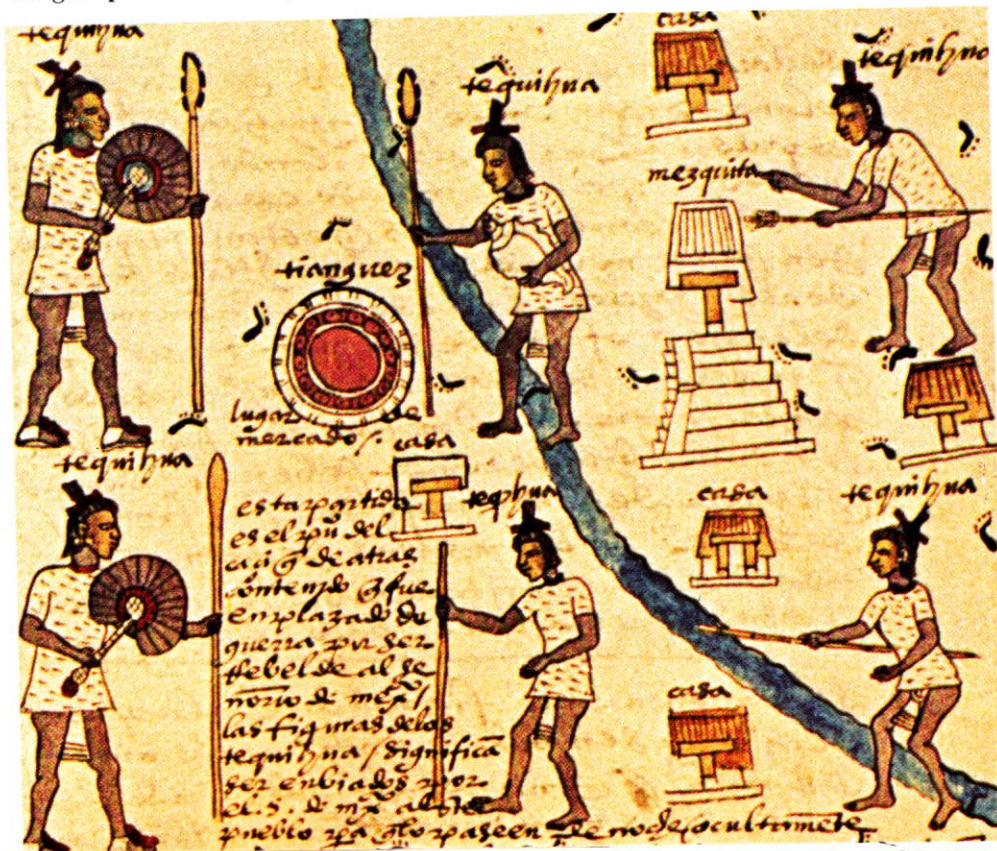 tequihua
casa
tequihua
tequihua
mezquita
tianguez
lugar de
mercado /.
casa
tequihua
casa
teq̄hua
tequihua
esta partida
es el del
de atras
contenido q̄ fue
enplazado de
guerra por ser
Rebelde al se
norio de mexº /
las figuras de los
tequihua / significā
ser enbiados por
el S. de mexº al
pueblo q̄ lo paseen de noche ocultamēte
casa